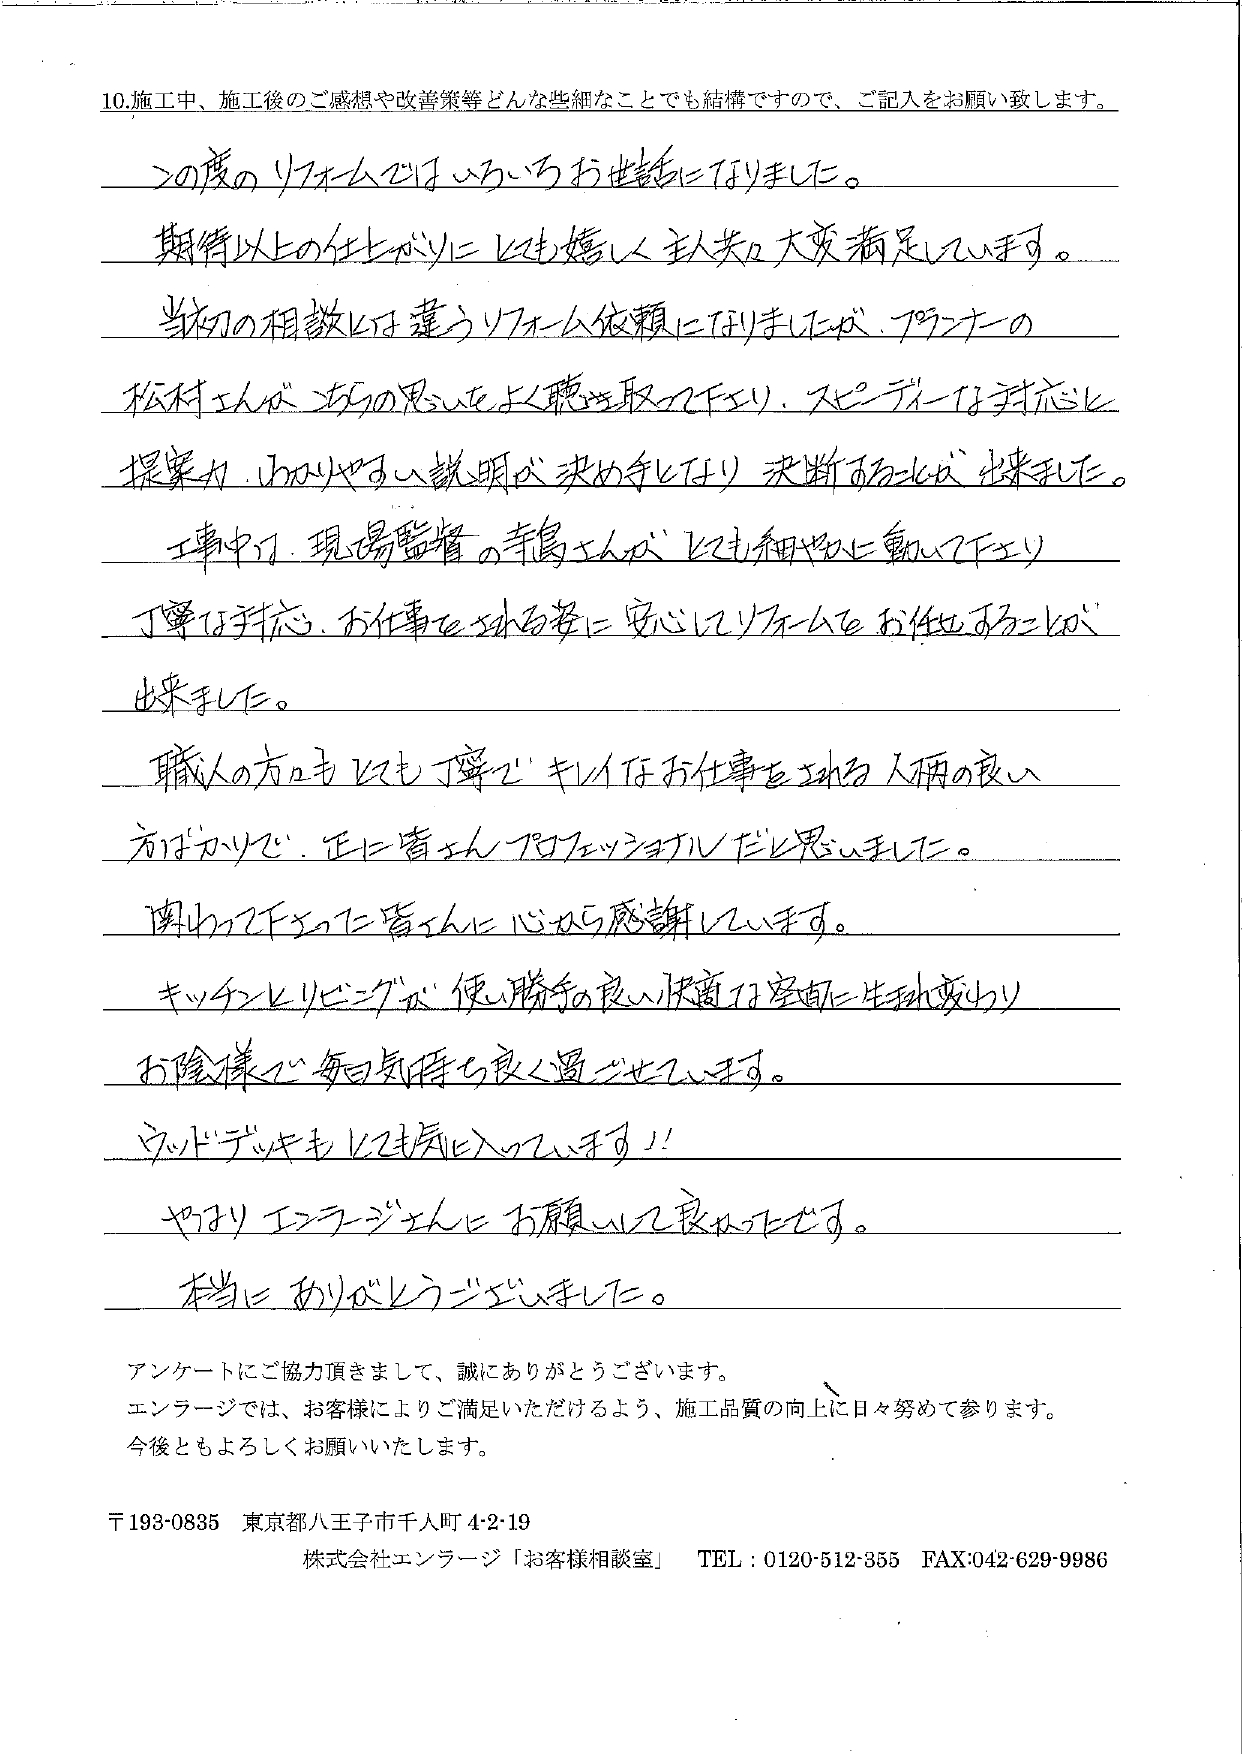 10.施工中、施工後のご感想や改善策等どんな些細なことでも結構ですので、ご記入をお願い致します。
この度のリフォームではいろいろお世話になりました。
期待以上の仕上がりにとても嬉しく主人共々大変満足しています。
当初の相談とは違うリフォーム依頼になりましたが、プランナーの
松村さんがこちらの思いをよく聴き取って下さり、スピーディーな対応と
提案力、わかりやすい説明が決め手となり決断することが出来ました。
工事中は、現場監督の寺島さんがとても細やかに動いて下さり
丁寧な対応、お仕事をされる姿に安心してリフォームをお任せすることが
出来ました。
職人の方々もとても丁寧でキレイなお仕事をされる人柄の良い
方ばかりで、正に皆さんプロフェッショナルだと思いました。
関わって下さった皆さんに心から感謝しています。
キッチンとリビングが使い勝手の良い快適な空間に生まれ変わり
お陰様で毎日気持ち良く過ごせています。
ウッドデッキもとても気に入っています!!
やはりエンラージさんにお願いして良かったです。
本当にありがとうございました。
アンケートにご協力頂きまして、誠にありがとうございます。
エンラージでは、お客様によりご満足いただけるよう、施工品質の向上に日々努めて参ります。
今後ともよろしくお願いいたします。
〒193-0835 東京都八王子市千人町 4-2-19
株式会社エンラージ「お客様相談室」 TEL：0120-512-355 FAX:042-629-9986